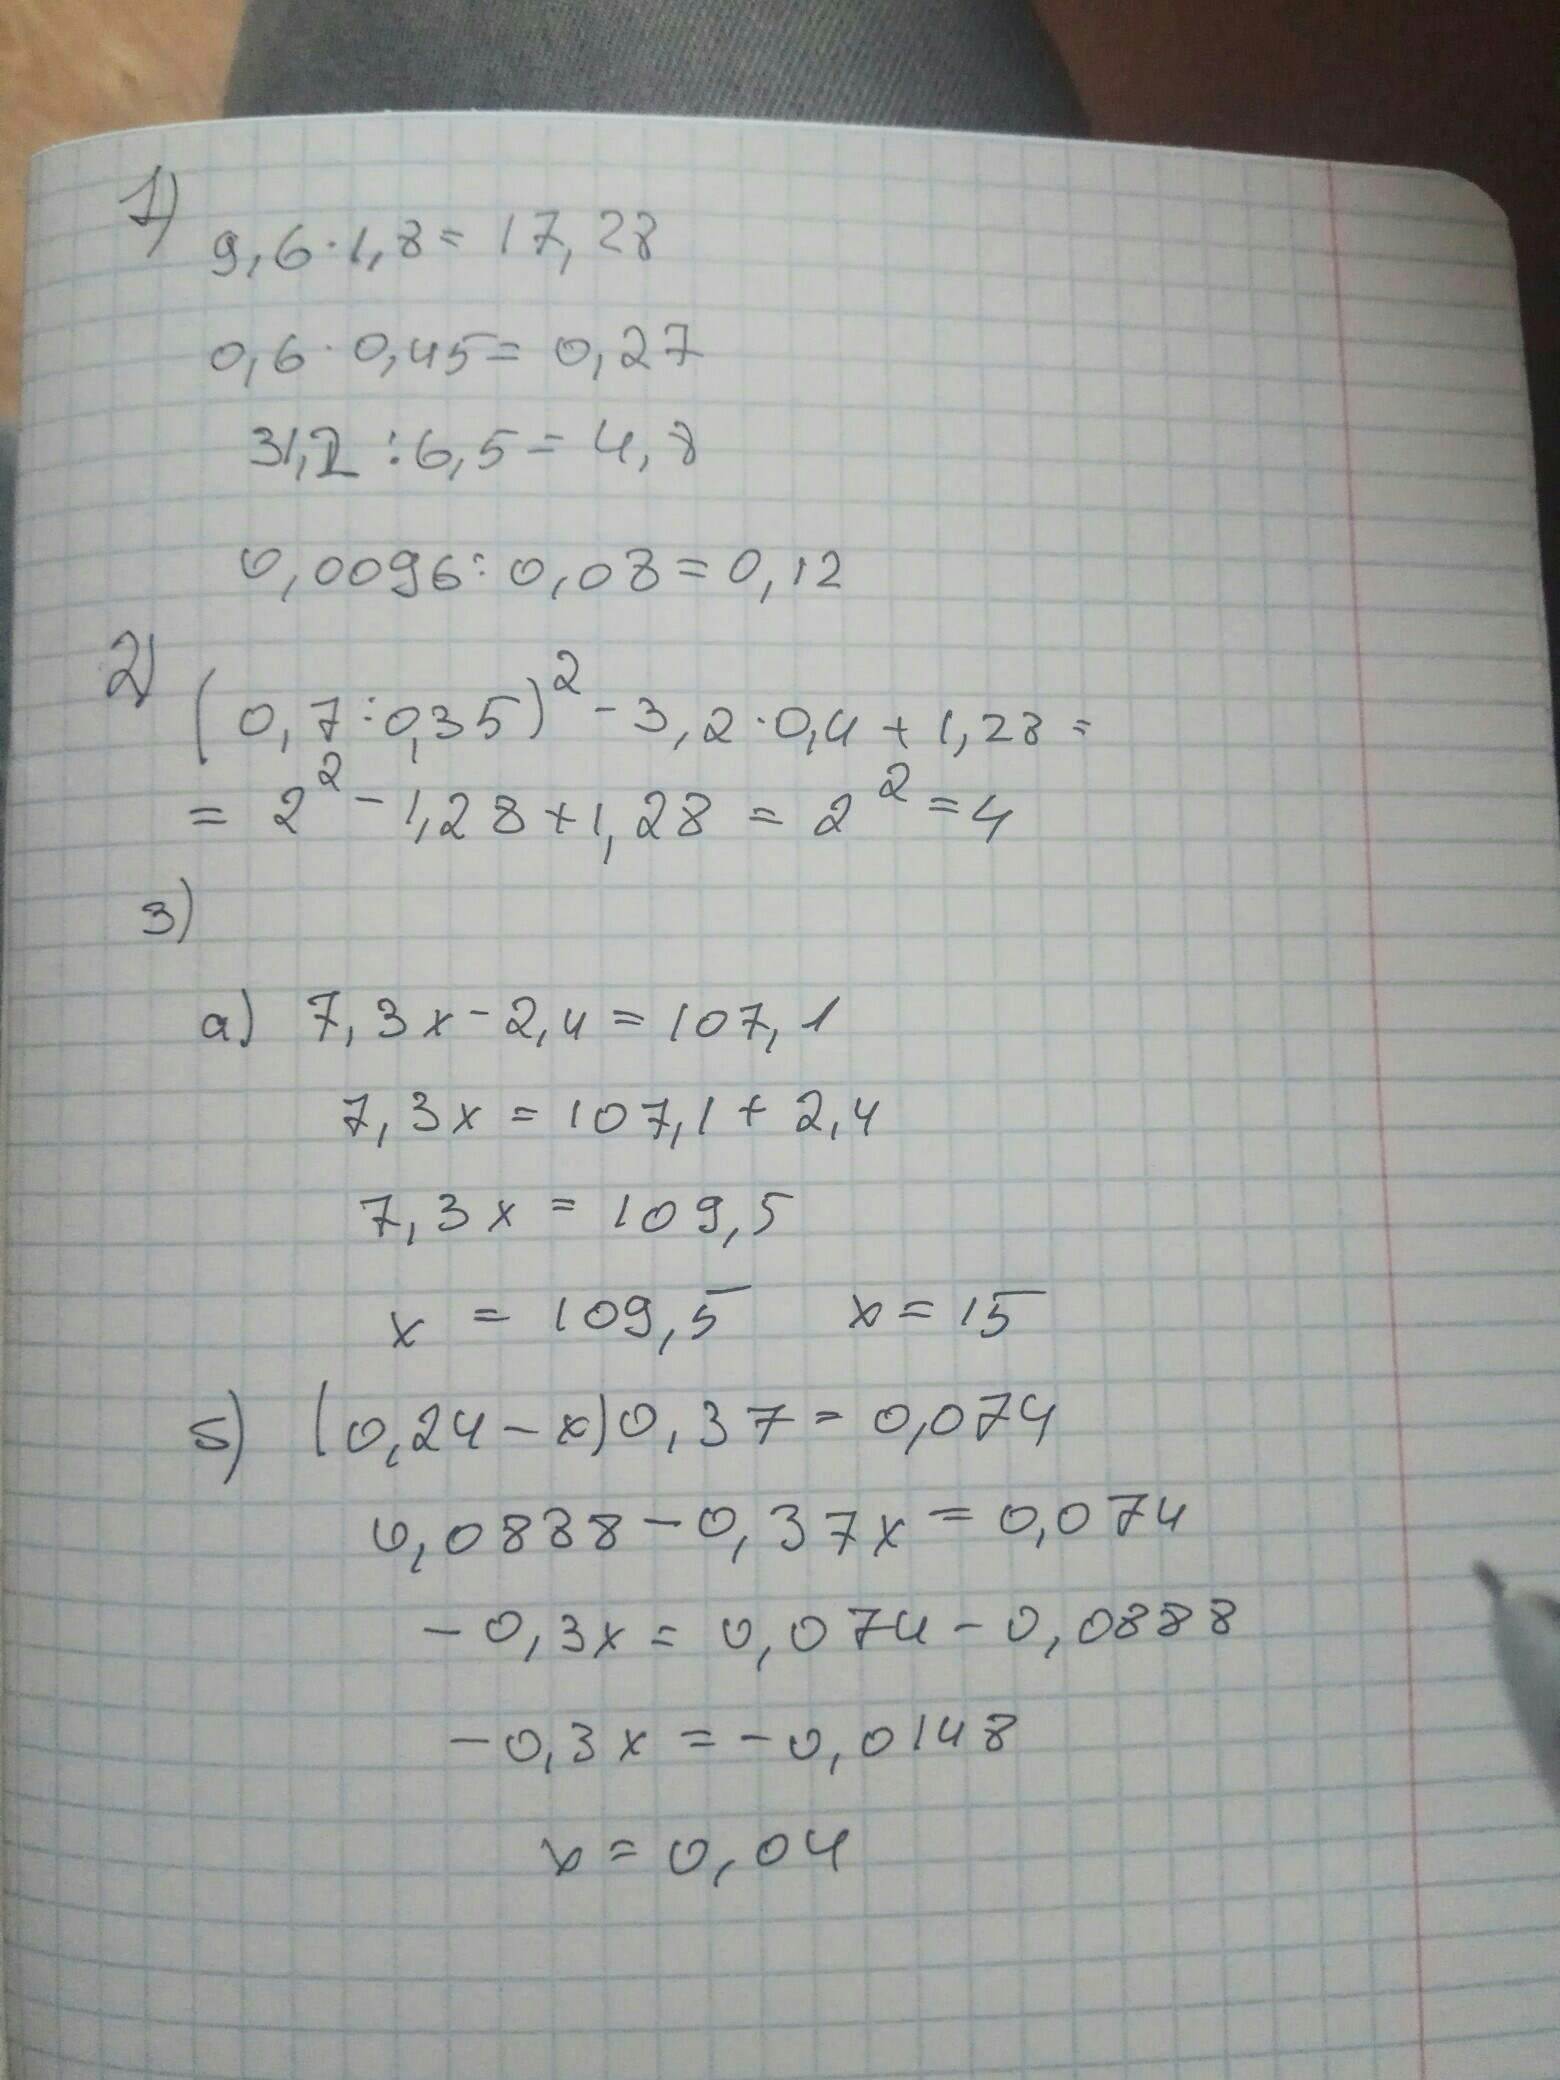 1)
9,6·1,8= 17,28
0,6·0,45= 0,27
31,2:6,5= 4,8
0,0096:0,08=0,12
2)
(0,7:0,35)² - 3,2·0,4 + 1,28 =
= 2² - 1,28 + 1,28 = 2² = 4
3)
а) 7,3x - 2,4 = 107,1
7,3x = 107,1 + 2,4
7,3x = 109,5
x = 109,5 x = 15
б) (0,24 - x)0,37 = 0,074
0,0888 - 0,37x = 0,074
-0,3x = 0,074 - 0,0888
-0,3x = -0,0148
x = 0,04